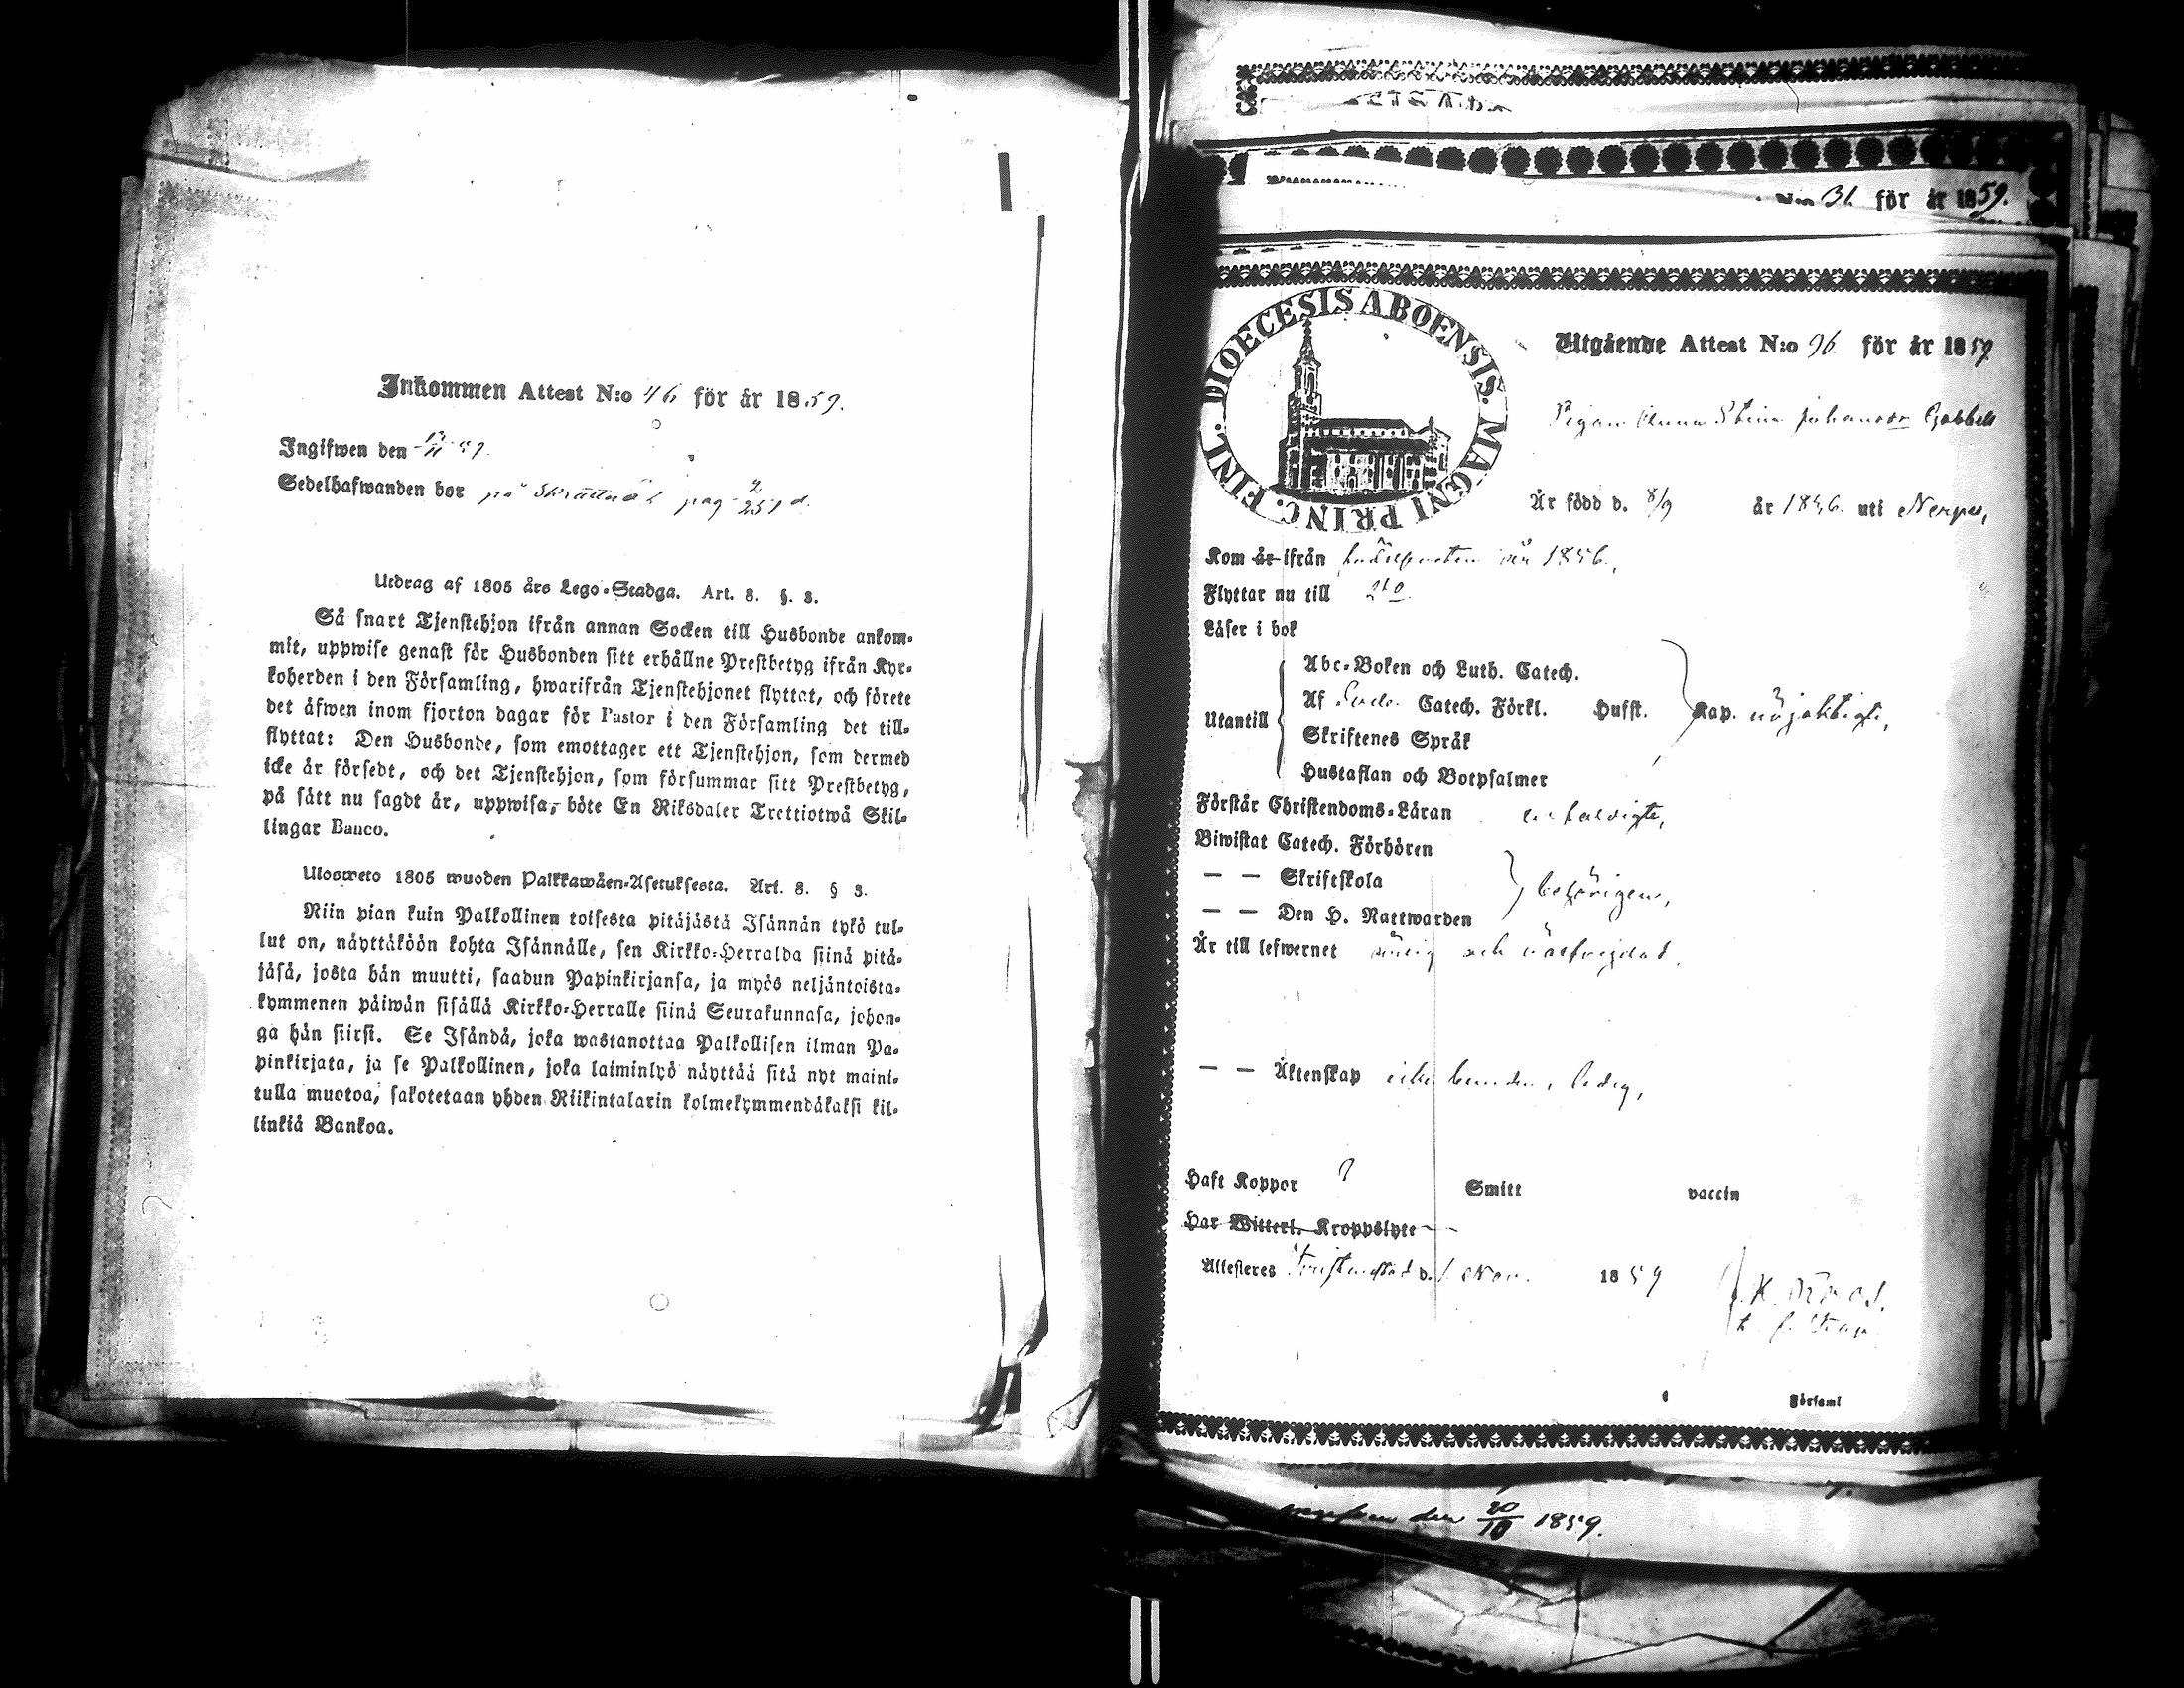 Inkommen Attest N:o 46 för år 1859.
Ingifwen den 13/11 59.
Sedelhafwanden bor på Skrattnäs pag 251 d.
Utdrag af 1805 års Lego-Stadga. Art. 8. §. 3.
Så snart Tjenstehjon ifrån annan Socken till Husbonde ankom-
mit, uppwise genast för Husbonden sitt erhållne Prestbetyg ifrån Kyr-
koherden i den Församling, hwarifrån Tjenstehjonet flyttat, och förete
det äfwen inom fjorton dagar för Pastor i den Församling det till-
flyttat: Den Husbonde, som emottager ett Tjenstehjon, som dermed
icke är försedt, och det Tjenstehjon, som försummar sitt Prestbetyg,
på sätt nu sagdt är, uppwisa, böte En Riksdaler Trettiotwå Skil-
lingar Banco.
Ulosweto 1805 wuoden Palkkawäen-Asetuksesta. Art. 8. § 3.
Niin pian kuin Palkollinen toisesta pitäjästä Isännän tykö tul-
lut on, näyttäköön kohta Isännälle, sen Kirkko-Herralda siinä pitä-
jäsä, josta hän muutti, saadun Papinkirjansa, ja myös neljäntoista-
kymmenen päiwän sisällä Kirkko-Herralle siinä Seurakunnasa, johon-
ga hän siirsi. Se Isändä, joka wastanottaa Palkollisen ilman Pa-
pinkirjata, ja se Palkollinen, joka laiminlyö näyttää sitä nyt maini-
tulla muotoa, sakotetaan yhden Riikintalarin kolmekymmendäkaksi kil-
linkiä Bankoa.
N:o 31. för år 1859.
DIOECESIS ABOENSIS. MAGNI PRINC. FINL.
Utgående Attest N:o 96. för år 1859
Pigan Anna Stina Johansdr Gabbels
Är född d. 8/9 år 1836. uti Nerpes,
Kom år ifrån födelseorten år 1856.,
Flyttar nu till do.
Läser i bok
Abc-Boken och Luth. Catech.
Utantill Af Catech. Förkl. Husst. Kap. nöjaktigt,
Skriftenes Språk
Hustaflan och Botpsalmer
Förstår Christendoms-Läran enfaldigt,
Biwistat Catech. Förhören
— — Skriftskola behörigen,
— — Den H. Nattwarden
Är till lefwernet ärlig och oberyktad.
— — Äktenskap icke bunden, ledig,
Haft Koppor ? Smitt vaccin
Har Witterl. Kroppslyte
Attesteres Kristinestad d. 1 Nov. 1859
Församl
den 20/10 1859.